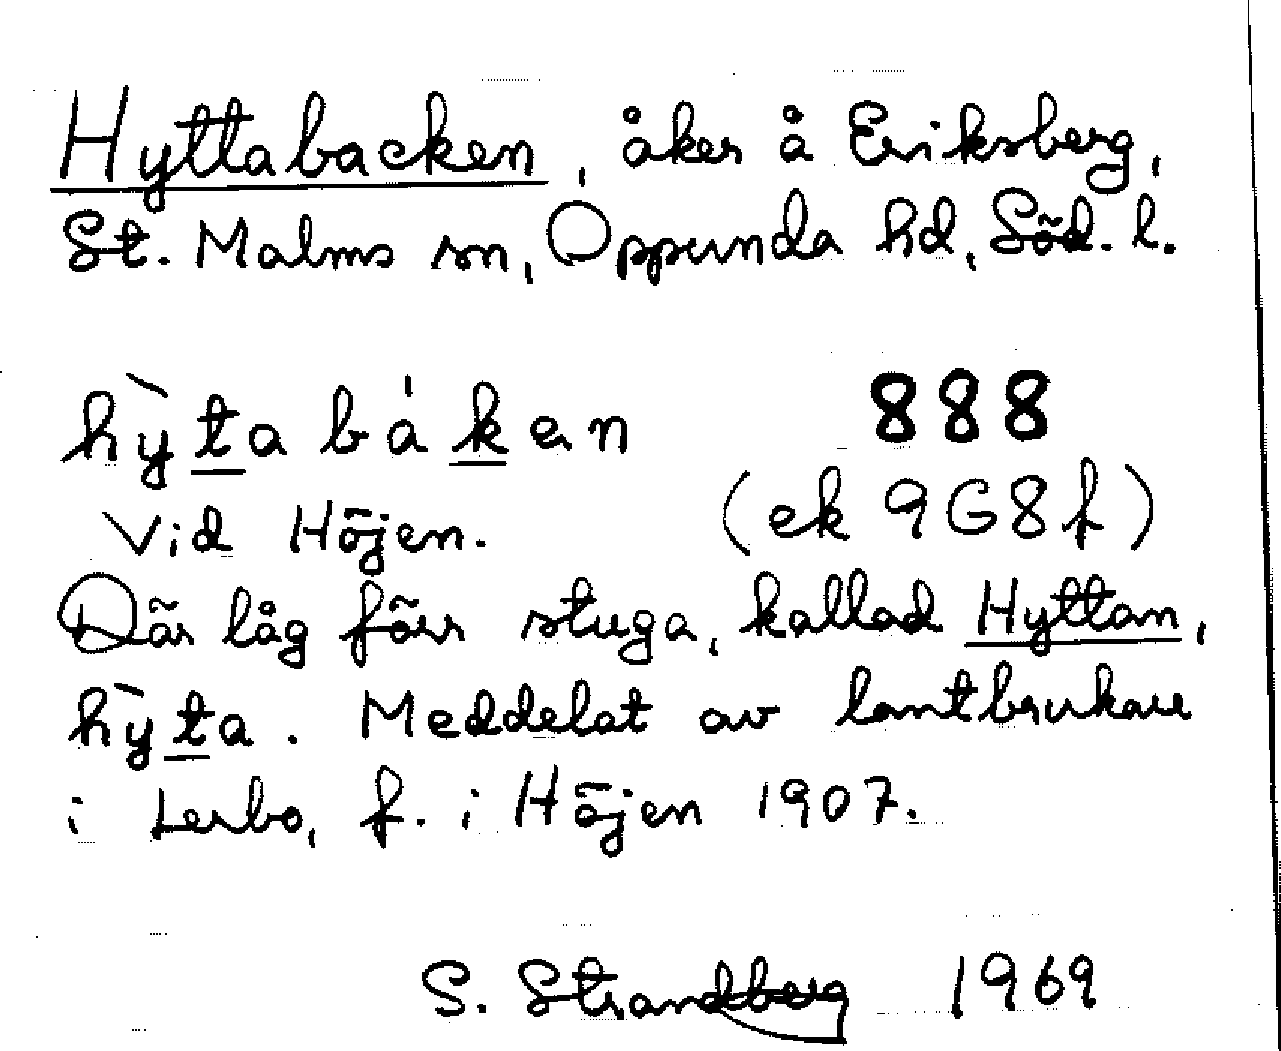 Hyttabacken, åker å Eriksberg,
St. Malms sn, Oppunda hd, Söd. l.
hỳt̲abák̲en 888
Vid Höjen. (ek 9G8f)
Där låg förr stuga, kallad Hyttan,
hỳt̲a. Meddelat av lantbrukare
i Lerbo, f. i Höjen 1907.
S. Strandberg 1969